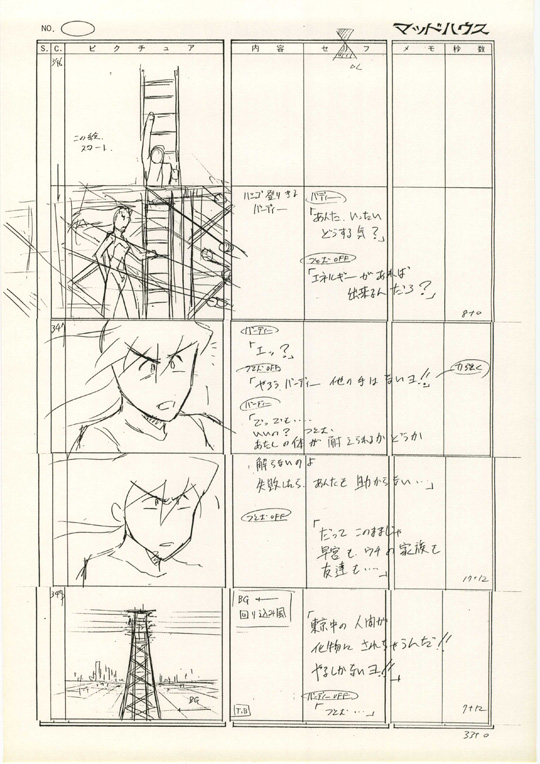 NO.
マッドハウス
S. C. ピクチュア 内容 セリフ メモ 秒数
346
この絵
スタート
OL
ハシゴ登りきる
バーディー
バーディー
「あんた、いったい
どうする気?」
つとむOFF
「エネルギーがあれば
出来るんだろ?」
8+0
347
バーディー
「エッ?」
つとむOFF
「やろうバーディー 他の手はないヨ!!」
力強く
バーディー
「でっでも‥‥
いいの? つとむ
あたしの体が耐えられるかどうか
解らないのよ
失敗したら、あんたも助からない‥」
つとむOFF
「だってこのままじゃ
早宮も、ウチの家族も
友達も‥‥
17+12
348
BG ←
回り込み風
「東京中の人間が
化物にされちゃうんだ!!
やるしかないヨ!!」
バーディーOFF
「つとむ‥‥」
BG
T.B
7+12
33+0